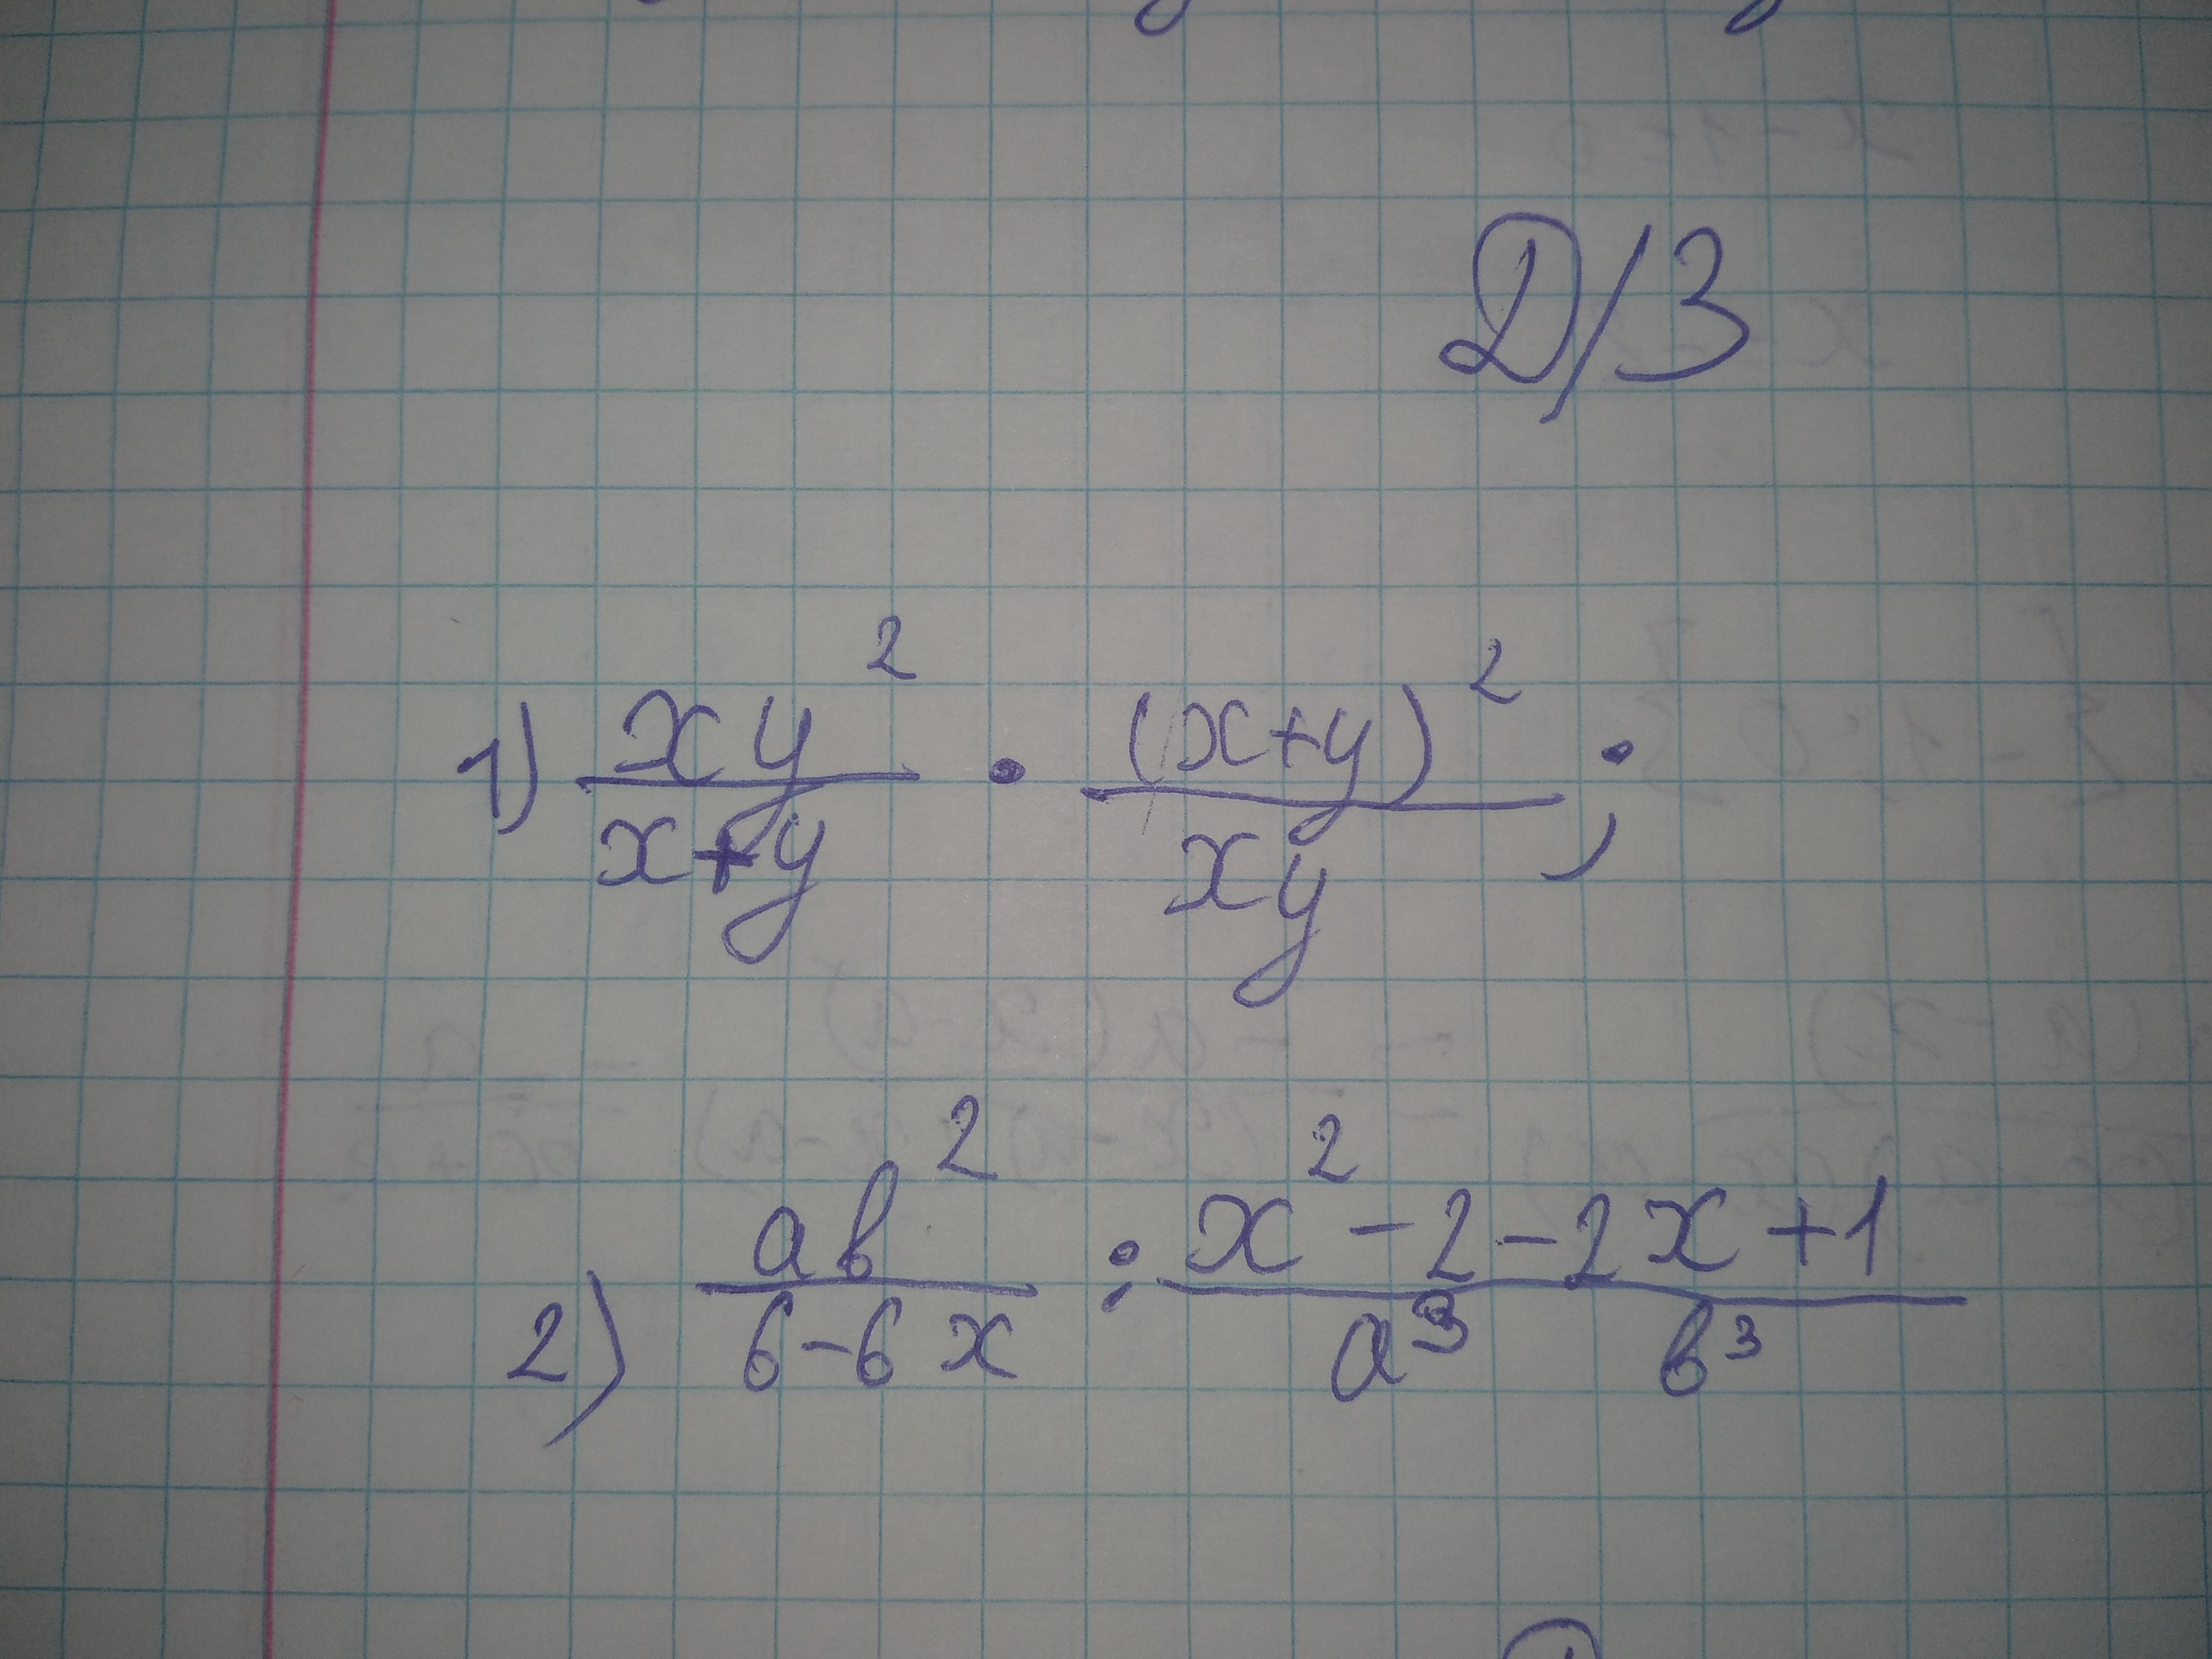 Д/З
1) xy²/x+y · (x+y)²/xy ;
2) ab²/6-6x : x²-2-2x+1/a³ b³